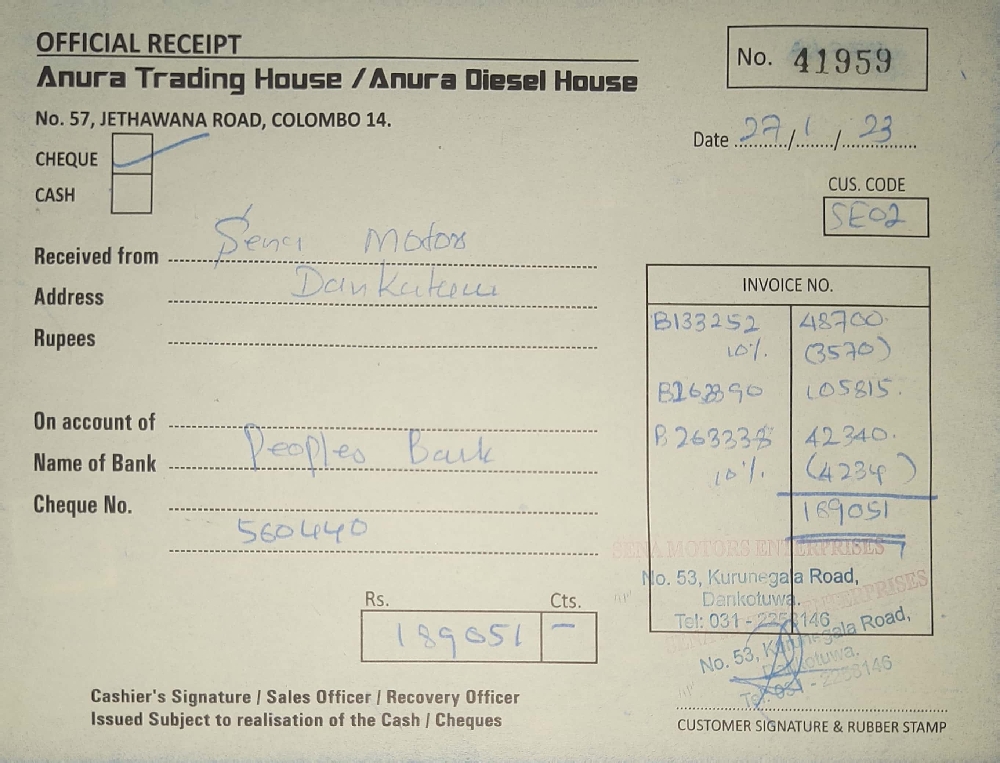 OFFICIAL RECEIPT
Anura Trading House / Anura Diesel House
No. 57, JETHAWANA ROAD, COLOMBO 14.
No. 41959
Date 27/1/23
CHEQUE
CASH
CUS. CODE
SE02
Received from Sena Motors
Address Dankotuwa
Rupees
On account of
Name of Bank Peoples Bank
Cheque No.
560440
INVOICE NO.
B133252 48700.
10%. (3570)
105815.
42340.
10%. (4234)
189051
Rs. Cts.
189051 –
SENA MOTORS ENTERPRISES
No. 53, Kurunegala Road,
Dankotuwa.
Tel: 031 - 2258146
ENTERPRISES
No. 53, Kurunegala Road,
Dankotuwa.
Tel: 031 - 2258146
Cashier's Signature / Sales Officer / Recovery Officer
Issued Subject to realisation of the Cash / Cheques
CUSTOMER SIGNATURE & RUBBER STAMP